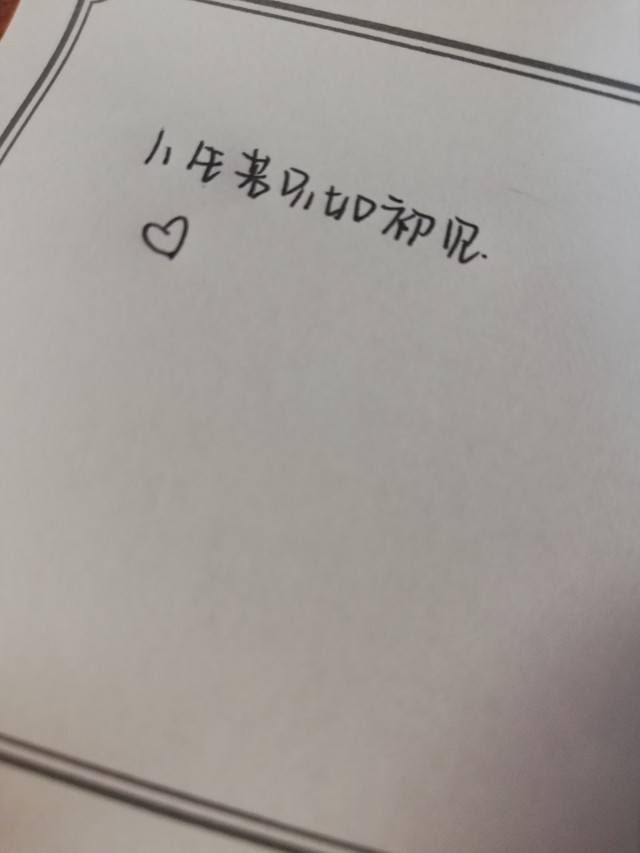 人生若只如初见.
♡